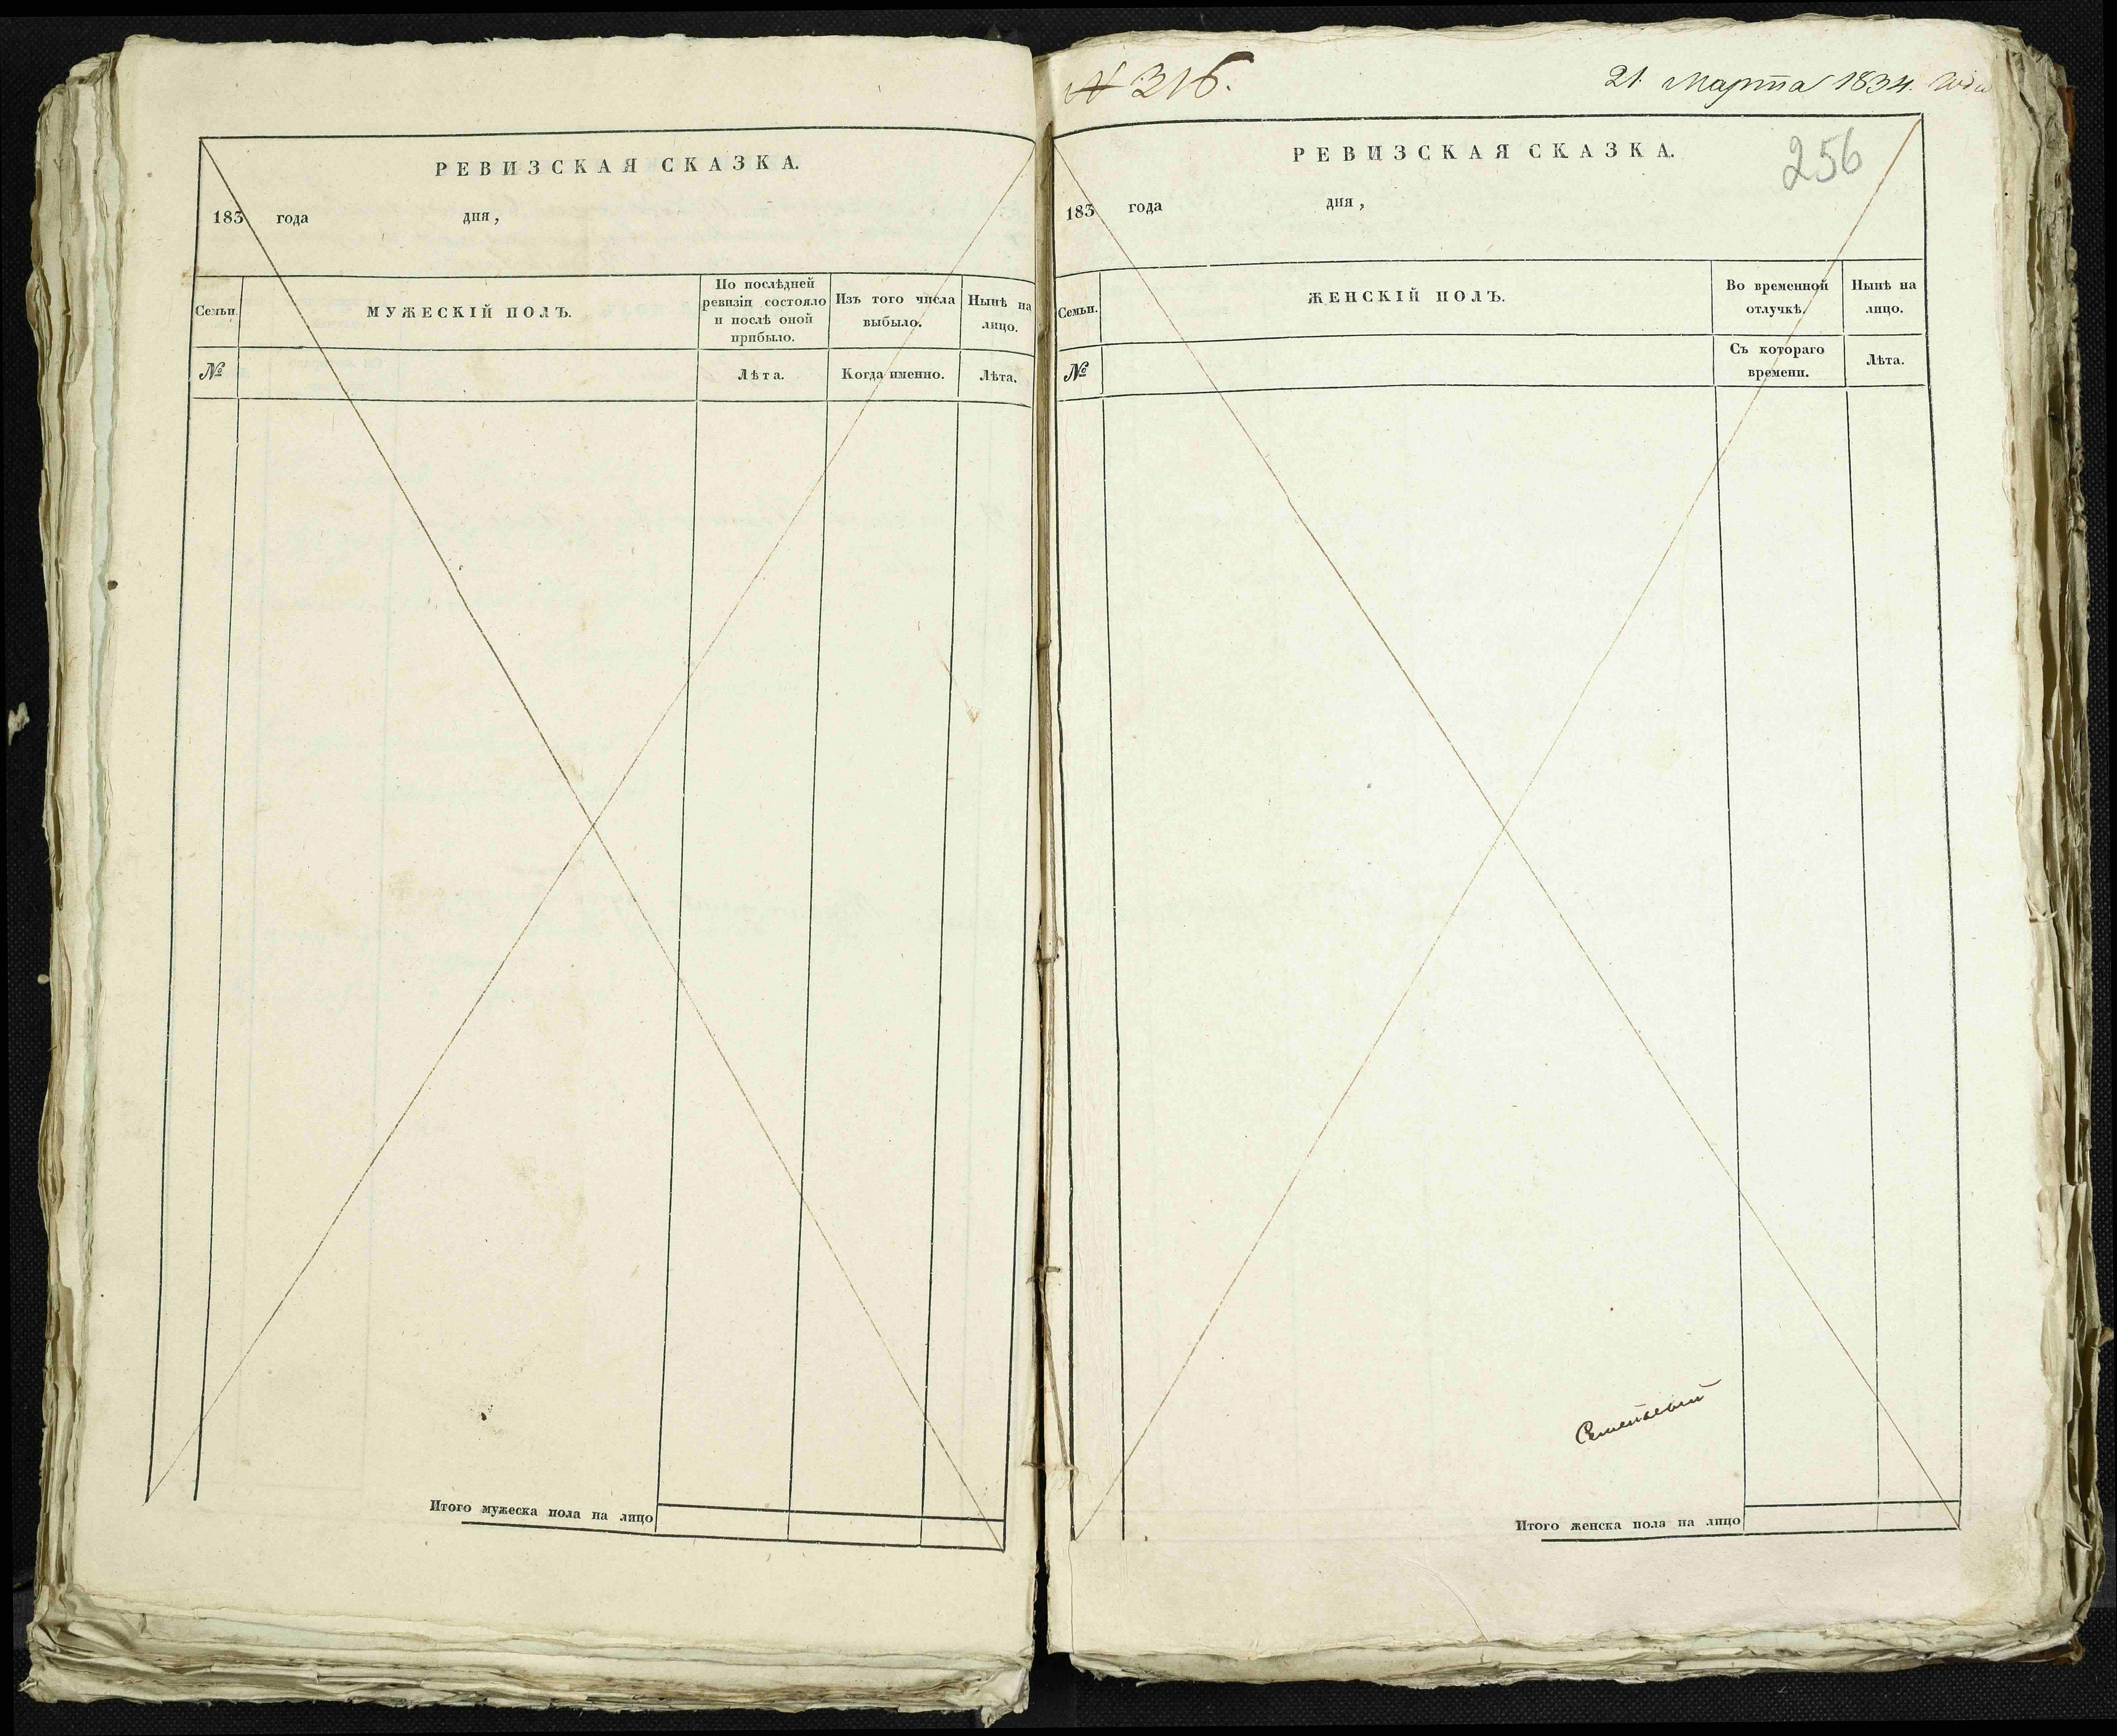 РЕВИЗСКАЯ СКАЗКА.
183 года дня,
Семьи.
МУЖЕСКІЙ ПОЛЪ.
По послѣдней
ревизіи состояло
и послѣ оной
прибыло.
Изъ того числа
выбыло.
Нынѣ на
лицо.
№
Лѣта.
Когда именно.
Лѣта.
Итого мужеска пола на лицо
№ 316.
21 Марта 1834. года
256
РЕВИЗСКАЯ СКАЗКА.
183 года дня,
Семьи.
ЖЕНСКІЙ ПОЛЪ.
Во временной
отлучкѣ.
Нынѣ на
лицо.
№
Съ котораго
времени.
Лѣта.
Итого женска пола на лицо